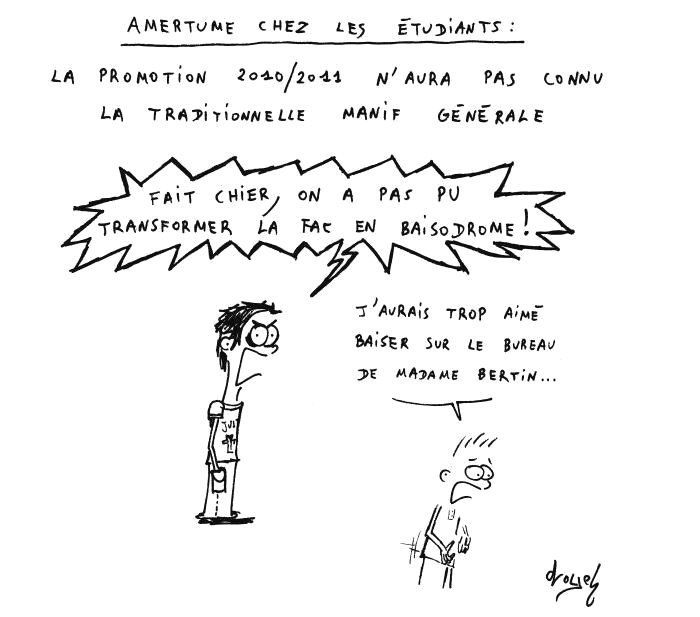 AMERTUME CHEZ LES ÉTUDIANTS :
LA PROMOTION 2010/2011 N'AURA PAS CONNU
LA TRADITIONNELLE MANIF GÉNÉRALE
FAIT CHIER, ON A PAS PU
TRANSFORMER LA FAC EN BAISODROME !
J'AURAIS TROP AIMÉ
BAISER SUR LE BUREAU
DE MADAME BERTIN...